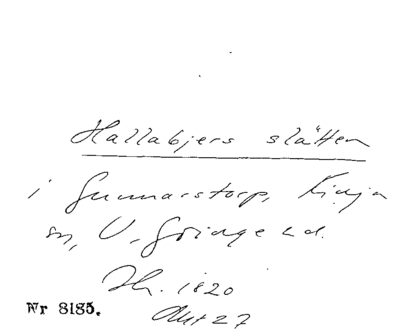 Hallabjers slätten
i Gunnarstorp, Finja
sn, V. Göinge hd.
Th. 1820
Akt 27
Nr 8185.